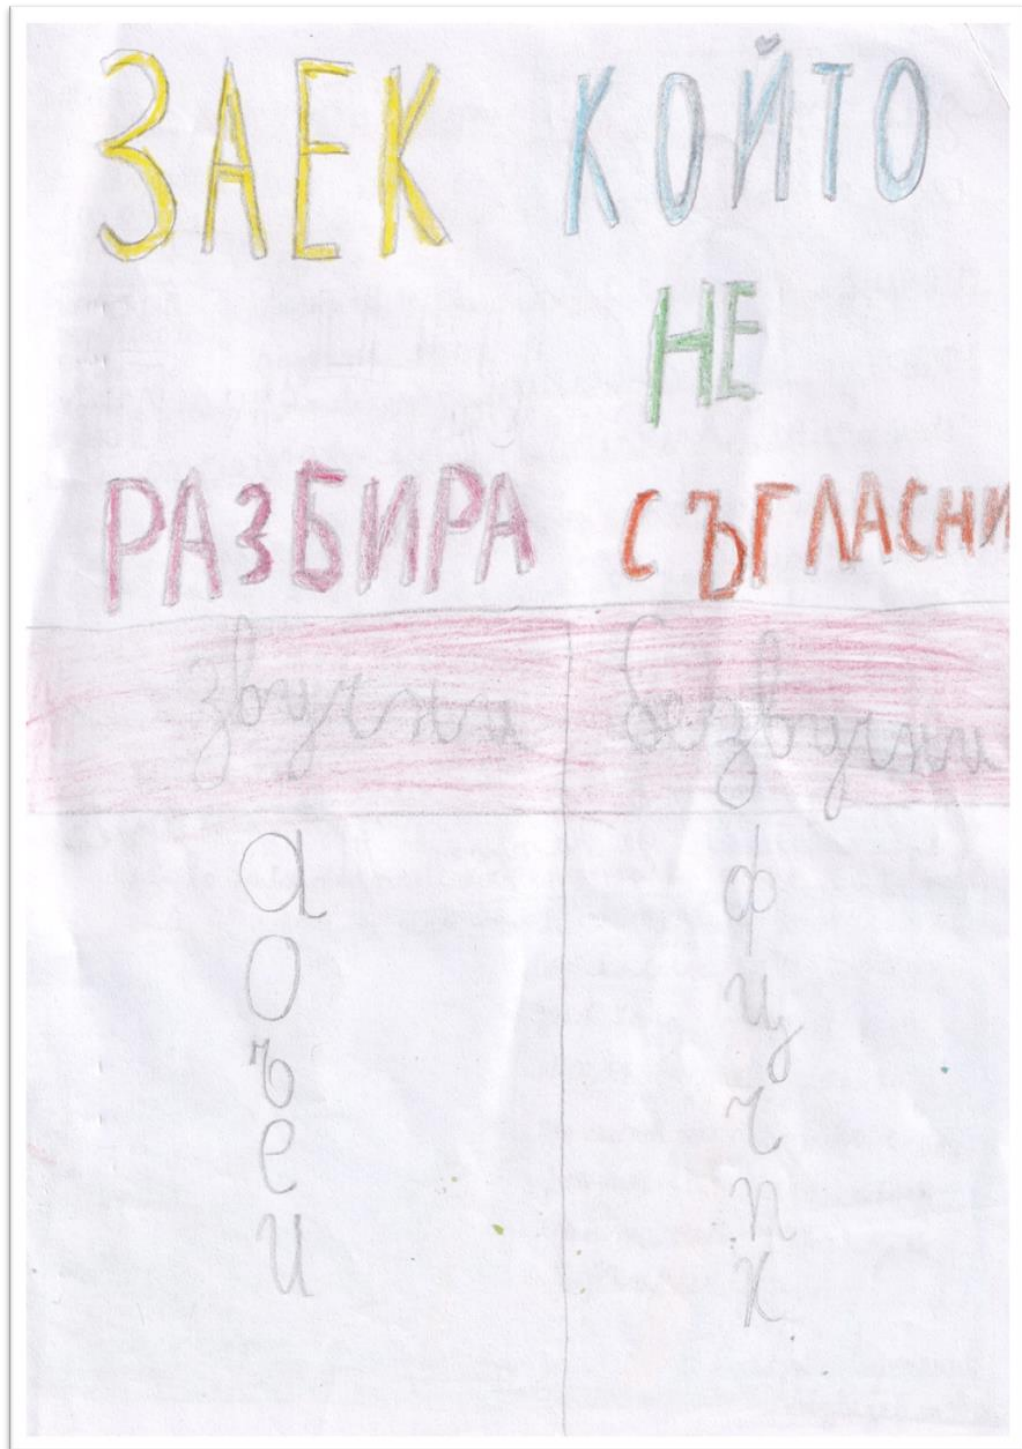 ЗАЕК КОЙТО
НЕ
РАЗБИРА СЪГЛАСНИ
звучни беззвучни
а ф
о ц
ъ ч
е п
и х